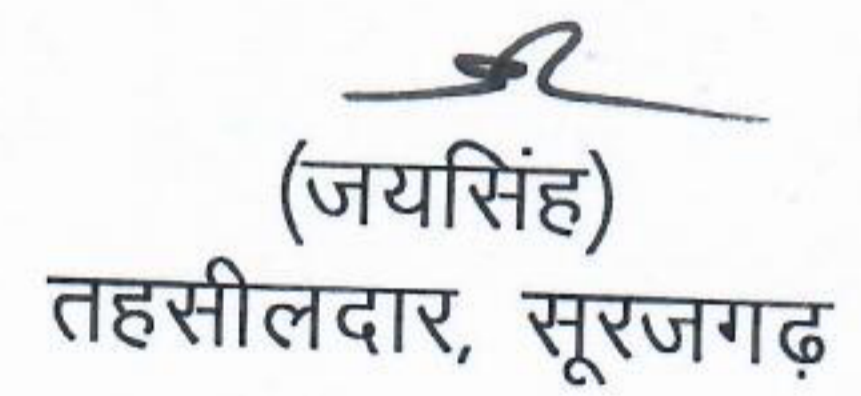 (जयसिंह)
तहसीलदार, सूरजगढ़